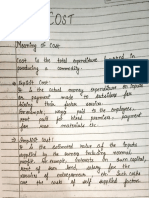 COST
Meaning of Cost
Cost is the total expenditure incurred in
producing a commodity.
Explicit Cost:-
It is the actual money expenditure on inputs
or payment made to outsiders for
hiring their factor services.
For example: wages paid to the employees,
rent paid for hired premises, payment
for raw materials etc.
Implicit Cost:-
It is the estimated value of the inputs
supplied by the owners including normal
profit. For example, interest on own capital,
rent of own land, salary for the
services of entrepreneur etc. Such costs
are the costs of self supplied factors.